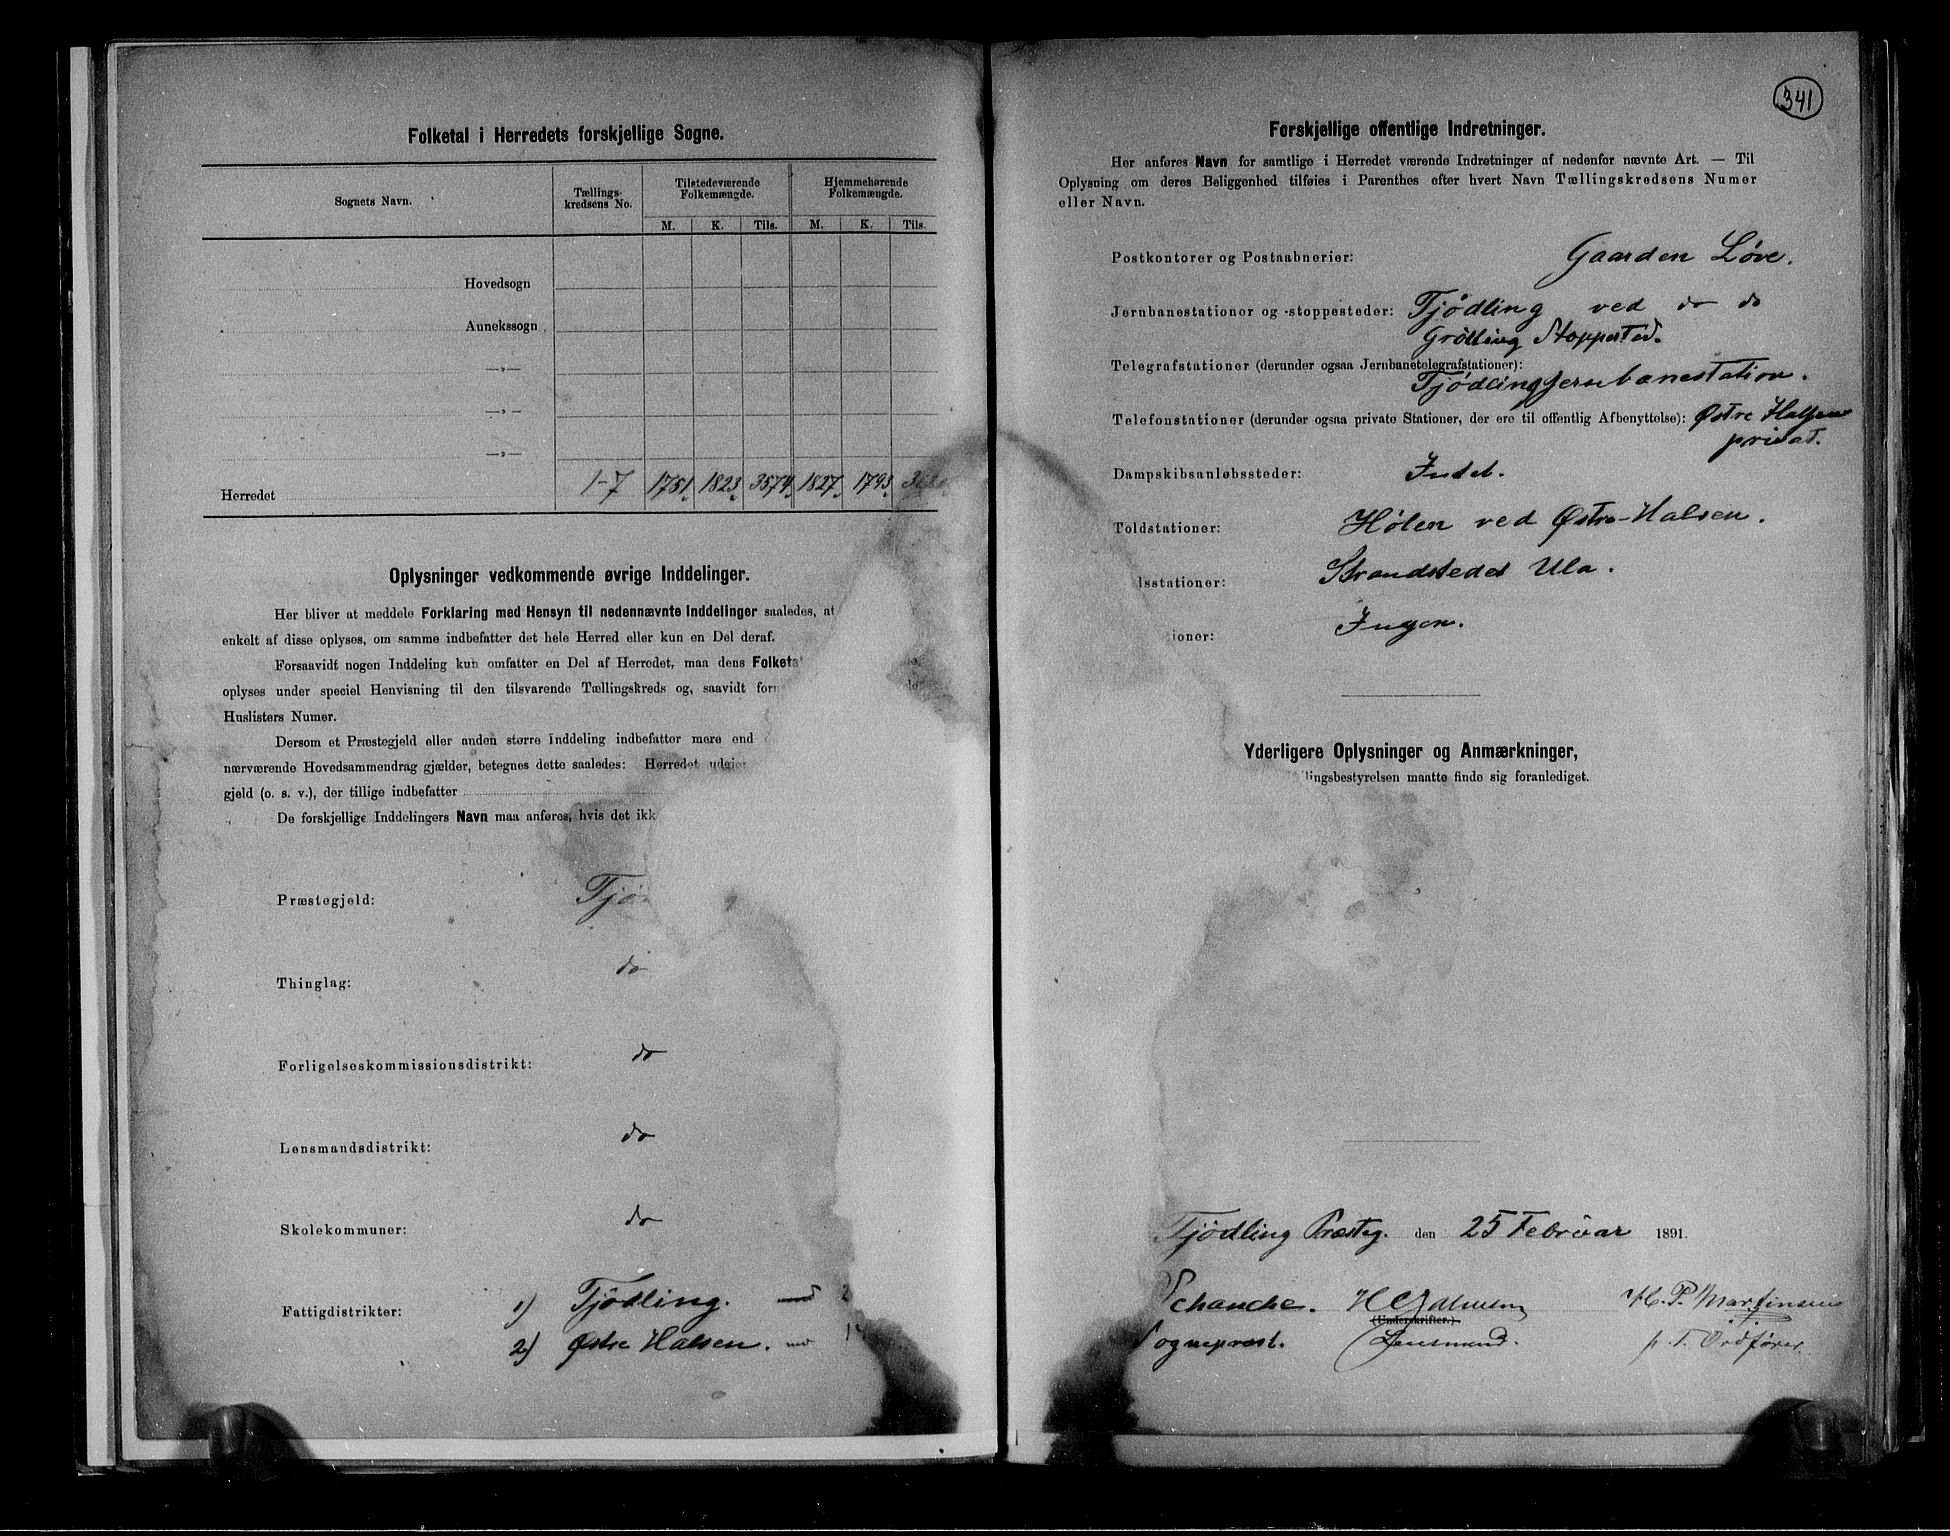 Folketal i Herredets forskjellige Sogne.
Sognets Navn.
Tællings-
kredsens No.
Tilstedeværende
Folkemængde.
Hjemmehørende
Folkemængde.
M. K. Tils. M. K. Tils.
Hovedsogn
Annekssogn
—„—
—„—
—„—
Herredet 1-7 1751 1823 3574 1827 1793
Oplysninger vedkommende øvrige Inddelinger.
Her bliver at meddele Forklaring med Hensyn til nedennævnte Inddelinger saaledes, at
enkelt af disse oplyses, om samme indbefatter det hele Herred eller kun en Del deraf.
Forsaavidt nogen Inddeling kun omfatter en Del af Herredet, maa dens Folketa
oplyses under speciel Henvisning til den tilsvarende Tællingskreds og, saavidt forn
Huslisters Numer.
Dersom et Præstegjeld eller anden større Inddeling indbefatter mere end
nærværende Hovedsammendrag gjælder, betegnes dette saaledes: Herredet udgjø
gjeld (o. s. v.), der tillige indbefatter
De forskjellige Inddelingers Navn maa anføres, hvis det ikk
Præstegjeld: Tjø
Thinglag: do
Forligelseskommissionsdistrikt: do
Lensmandsdistrikt: do
Skolekommuner: do
Fattigdistrikter: 1) Tjödling. med 2
2) Østre Halsen. md 1
341
Forskjellige offentlige Indretninger.
Her anføres Navn for samtlige i Herredet værende Indretninger af nedenfor nævnte Art. — Til
Oplysning om deres Beliggenhed tilføies i Parenthes efter hvert Navn Tællingskredsens Numer
eller Navn.
Postkontorer og Postaabnerier: Gaarden Løve.
Jernbanestationer og -stoppesteder: Tjødling ved do do
Stoppested.
Telegrafstationer (derunder ogsaa Jernbanetelegrafstationer):
Tjødling Jernbanestation.
Telefonstationer (derunder ogsaa private Stationer, der ere til offentlig Afbenyttelse): Østre Halsen
privat.
Dampskibsanløbssteder: Intet.
Toldstationer: Hølen ved Østre-Halsen.
lsstationer: Strandstedet Ula.
ioner: Ingen.
Yderligere Oplysninger og Anmærkninger,
lingsbestyrelsen maatte finde sig foranlediget.
Tjödling Præsteg. den 25 Februar 1891.
Schanche. H. P. Martinsen
(Underskrifter.)
Sogneprest. Lensmand. p. T. Ordfører